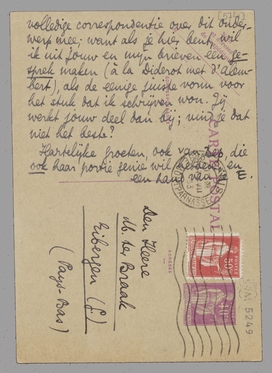 volledige correspondentie over dit onder-
werp mee; want als je hier bent, wil
ik uit jouw en mijn brieven een ge-
sprek maken (à la Diderot met d'Alem-
bert), als de eenige juiste vorm voor
het stuk dat ik schrijven wou. Jij
werkt jouw deel dan bij; vind je dat
niet het beste?
Hartelijke groeten, ook van Bep, die
ook haar portie genie wil hebben, en
een hand van
E.
Den Heere
M. ter Braak
Eibergen (G.)
(Pays-Bas)
5249